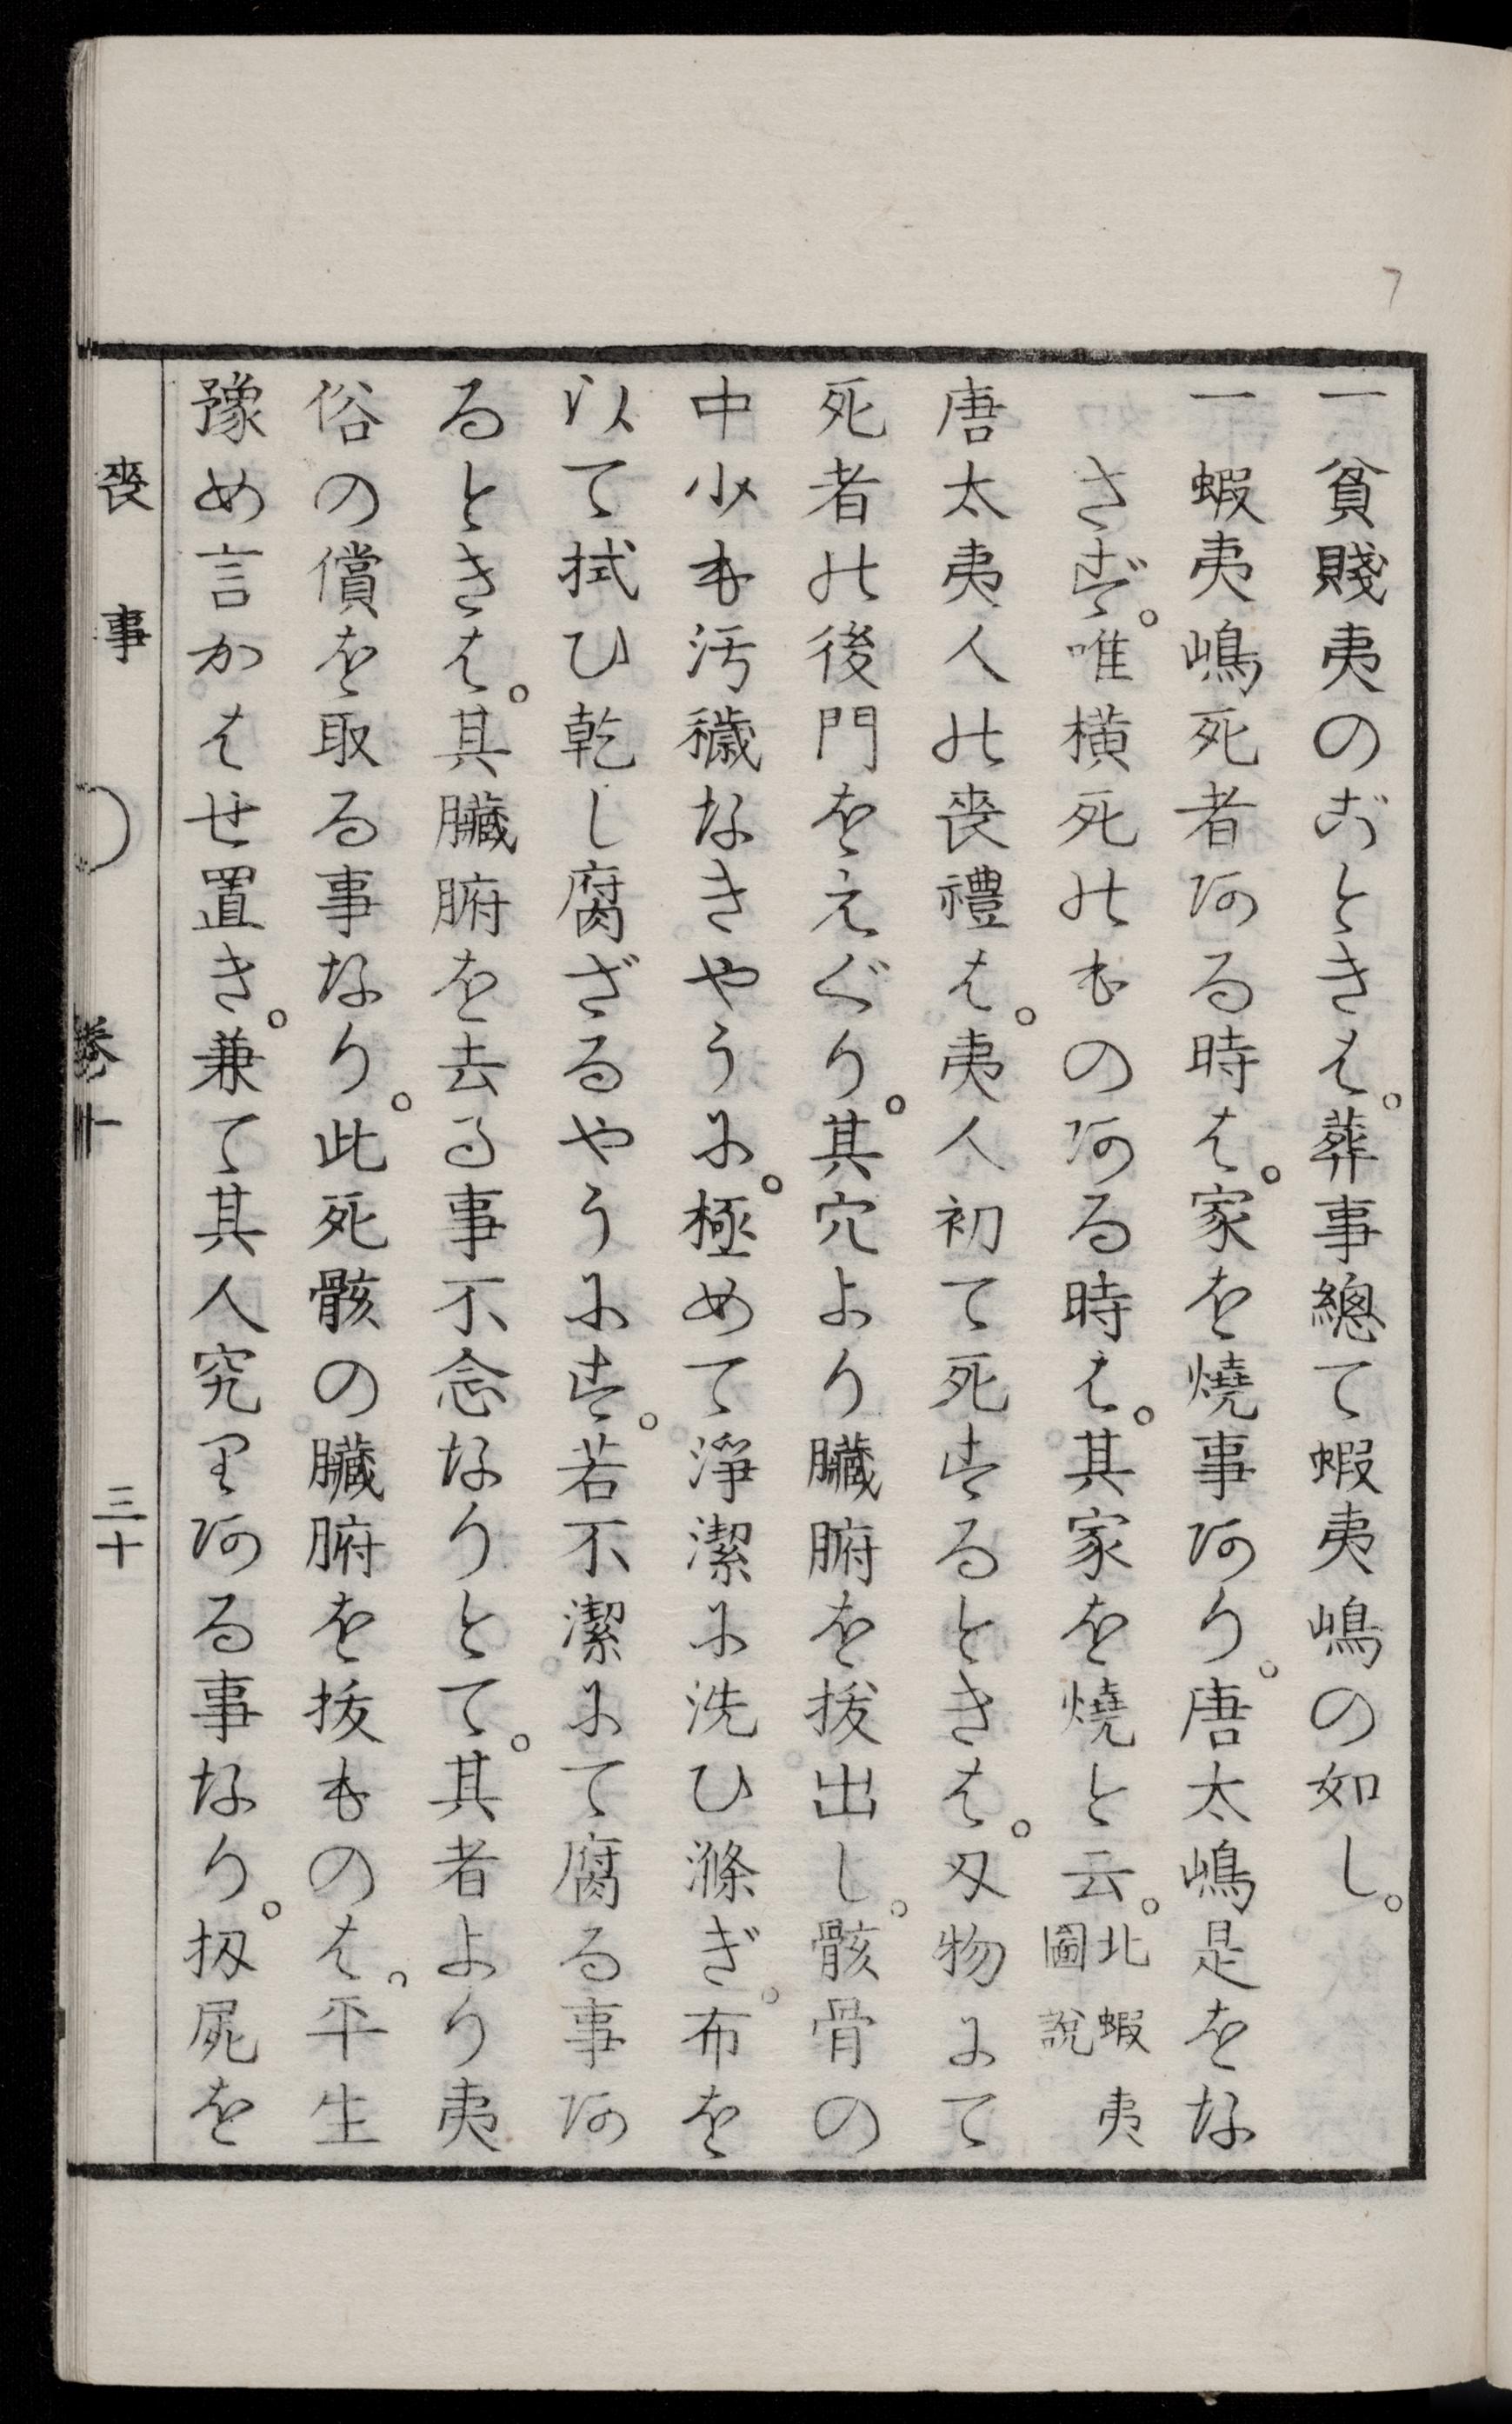 一貧賤夷のごときは。葬事總て蝦夷嶋の如し。
一蝦夷嶋死者ある時は。家を燒事あり。唐太嶋是をな
さず。唯横死のものある時は。其家を燒と云。北蝦夷
圖説
唐太夷人の喪禮は。夷人初て死するときは。刄物にて
死者の後門をえぐり。其穴より臓腑を拔出し。骸骨の
中少も汚穢なきやうに。極めて淨潔に洗ひ滌ぎ。布を
以て拭ひ乾し腐ざるやうにす。若不潔にて腐る事あ
るときは。其臓腑を去る事不念なりとて。其者より夷
俗の償を取る事なり。此死骸の臓腑を拔ものは。平生
豫め言かはせ置き。兼て其人究りある事なり。扨屍を
喪事　卷十　三十
7